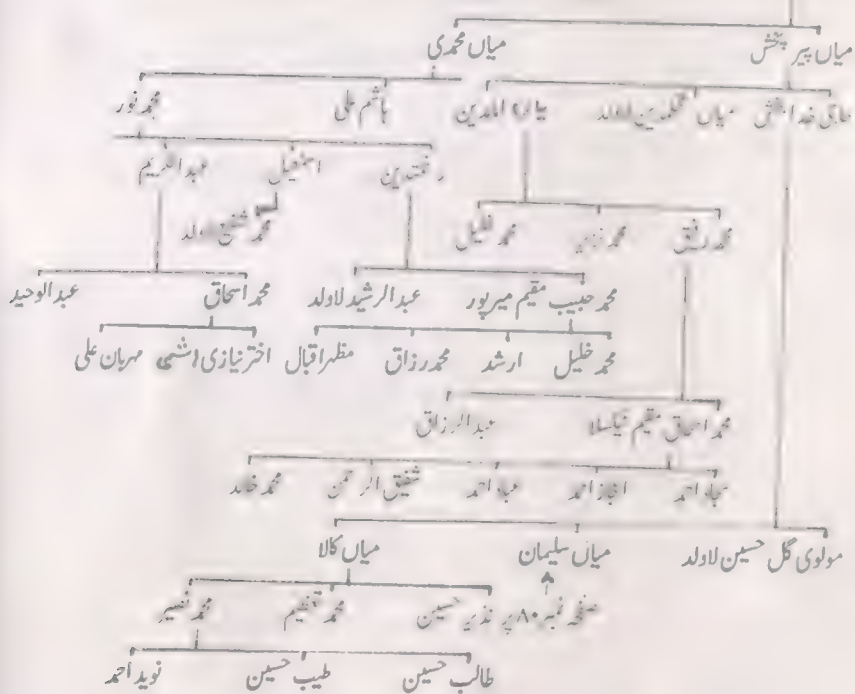 میاں پیر بخش میاں محمدی
حاجی خدا بخش میاں محکمدین لاولد میاں امامدین ہاشم علی محمد نور
رحمتدین اسمٰعیل عبدالکریم
محمد رفیق محمد نذیر محمد خلیل محمد شفیع لاولد
محمد حبیب مقیم میرپور عبدالرشید لاولد محمد اسحاق عبدالوحید
محمد خلیل ارشد محمد رزاق مظہر اقبال اختر نیازی ہاشمی مہربان علی
محمد اسحاق مقیم ٹیکسلا عبدالرزاق
سجاد احمد اعجاز احمد احمد شفیق الرحمن محمد خالد
مولوی گل حسین لاولد میاں سلیمان میاں کالا
صفحہ نمبر ۸۰ پر نذیر حسین محمد عظیم محمد نصیر
طالب حسین طیب حسین نوید احمد